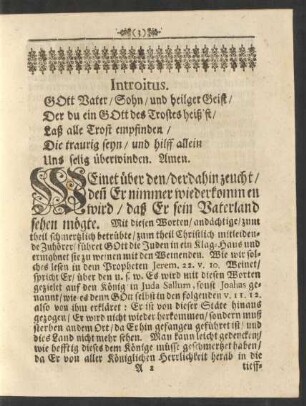 (3)
Introitus.
GOtt Vater/ Sohn/ und heilger Geist/
Der du ein GOtt des Trostes heiß'st/
Laß alle Trost empfinden/
Die traurig seyn/ und hilff allein
Uns selig überwinden. Amen.
WEinet über den/ der dahin zeucht/
deñ Er nimmer wiederkommen
wird/ daß Er sein Vaterland
sehen mögte. Mit diesen Worten/ andächtige/ zum
theil schmertzlich betrübte/ zum theil Christlich mitleiden-
de Zuhörer/ führet GOtt die Juden in ein Klag-Haus und
ermahnet sie zu weinen mit den Weinenden. Wie wir sol-
ches lesen in dem Propheten Jerem. 22. v. 10. Weinet/
spricht Er/ über den u. s. w. Es wird mit diesen Worten
gezielt auf den König in Juda Sallum, sonst Joahas ge-
nannt/ wie es denn GOtt selbst in den folgenden v. 11. 12.
also von ihm erklärt: Er ist von dieser Stäte hinaus
gezogen/ Er wird nicht wieder herkommen/ sondern muß
sterben an dem Ort/ da Er hin gefangen geführet ist/ und
dies Land nicht mehr sehen. Man kann leicht gedencken/
wie hefftig dieses dem Könige müsse geschmertzet haben/
da Er von aller Königlichen Herrlichkeit herab in die
A 2 tieff-